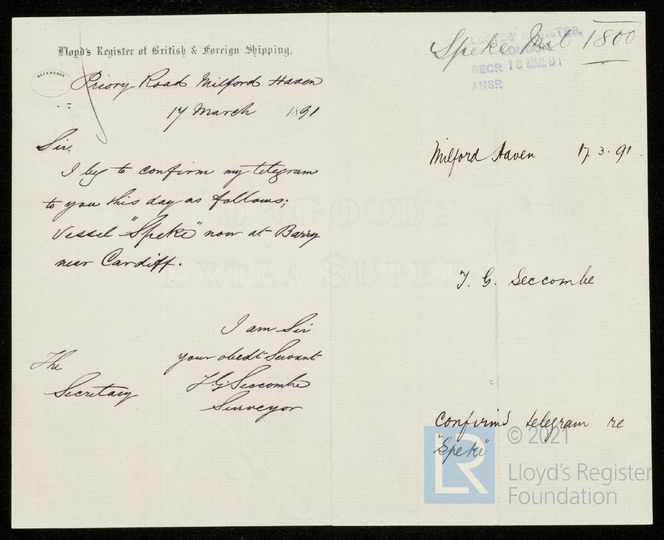 Lloyd's Register of British & Foreign Shipping.
REFERENCE
Priory Road Milford Haven
17 March 1891
Sir,
I beg to confirm my telegram
to you this day as follows;
Vessel "Speke" now at Barry
near Cardiff.
I am Sir
your obedt Servant
T. G. Seccombe
Surveyor
The
Secretary
Speke 1800
LLOYDS' REGISTER,
LONDON.
RECR 18 MAR. 91
ANSR
Milford Haven 17.3.91
T. G. Seccombe
Confirms telegram re
"Speke"
© 2021
LR
Lloyd's Register
Foundation